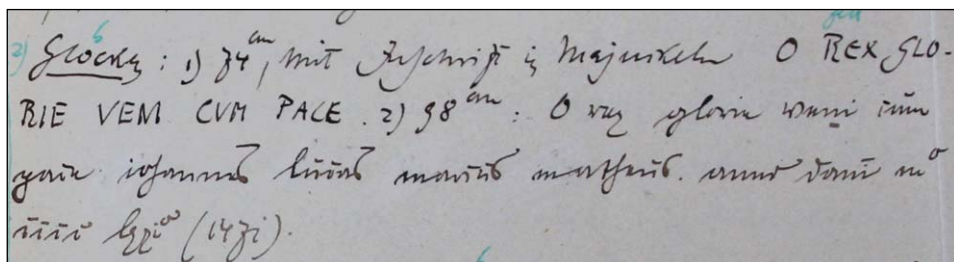 2) Glocken: 1) 74 cm, mit Inschrift in Majuskeln O REX GLO-
RIE VENI CVM PACE. 2) 98 cm: O rex glorie veni cum
pace iohannes lucas marcus matheus. anno domi m°
cccc lxxi° (1471).